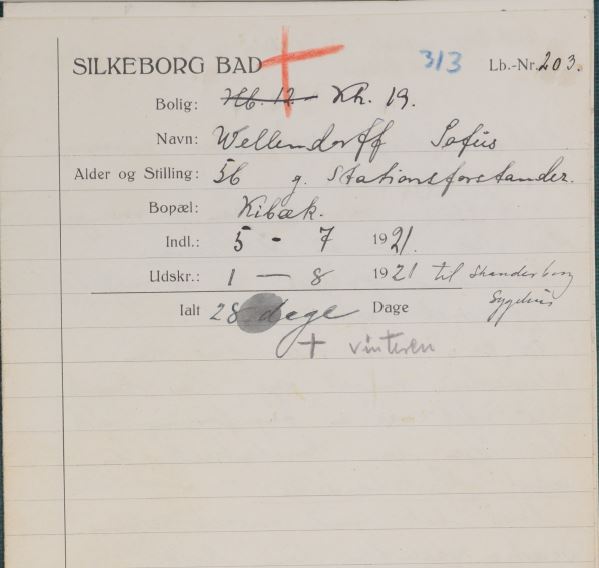 SILKEBORG BAD 313 Lb.-Nr. 203.
Bolig: Hb. 12 Kh. 19.
Navn: Wellendorff Sofus
Alder og Stilling: 56 g. Stationsforstander.
Bopæl: Kibæk.
Indl.: 5 - 7 1921.
Udskr.: 1 — 8 1921 til Skanderborg
Sygehus
Ialt 28 dage Dage
+ vinteren